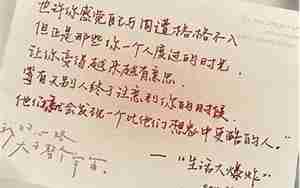 也许你感觉自己与周遭格格不入
但正是那些你一个人度过的时光，
让你变得越来越有意思.
等有天别人终于注意到你的时候.
他们就会发现一个比他们想象中更酷的人."
——"生活大爆炸"